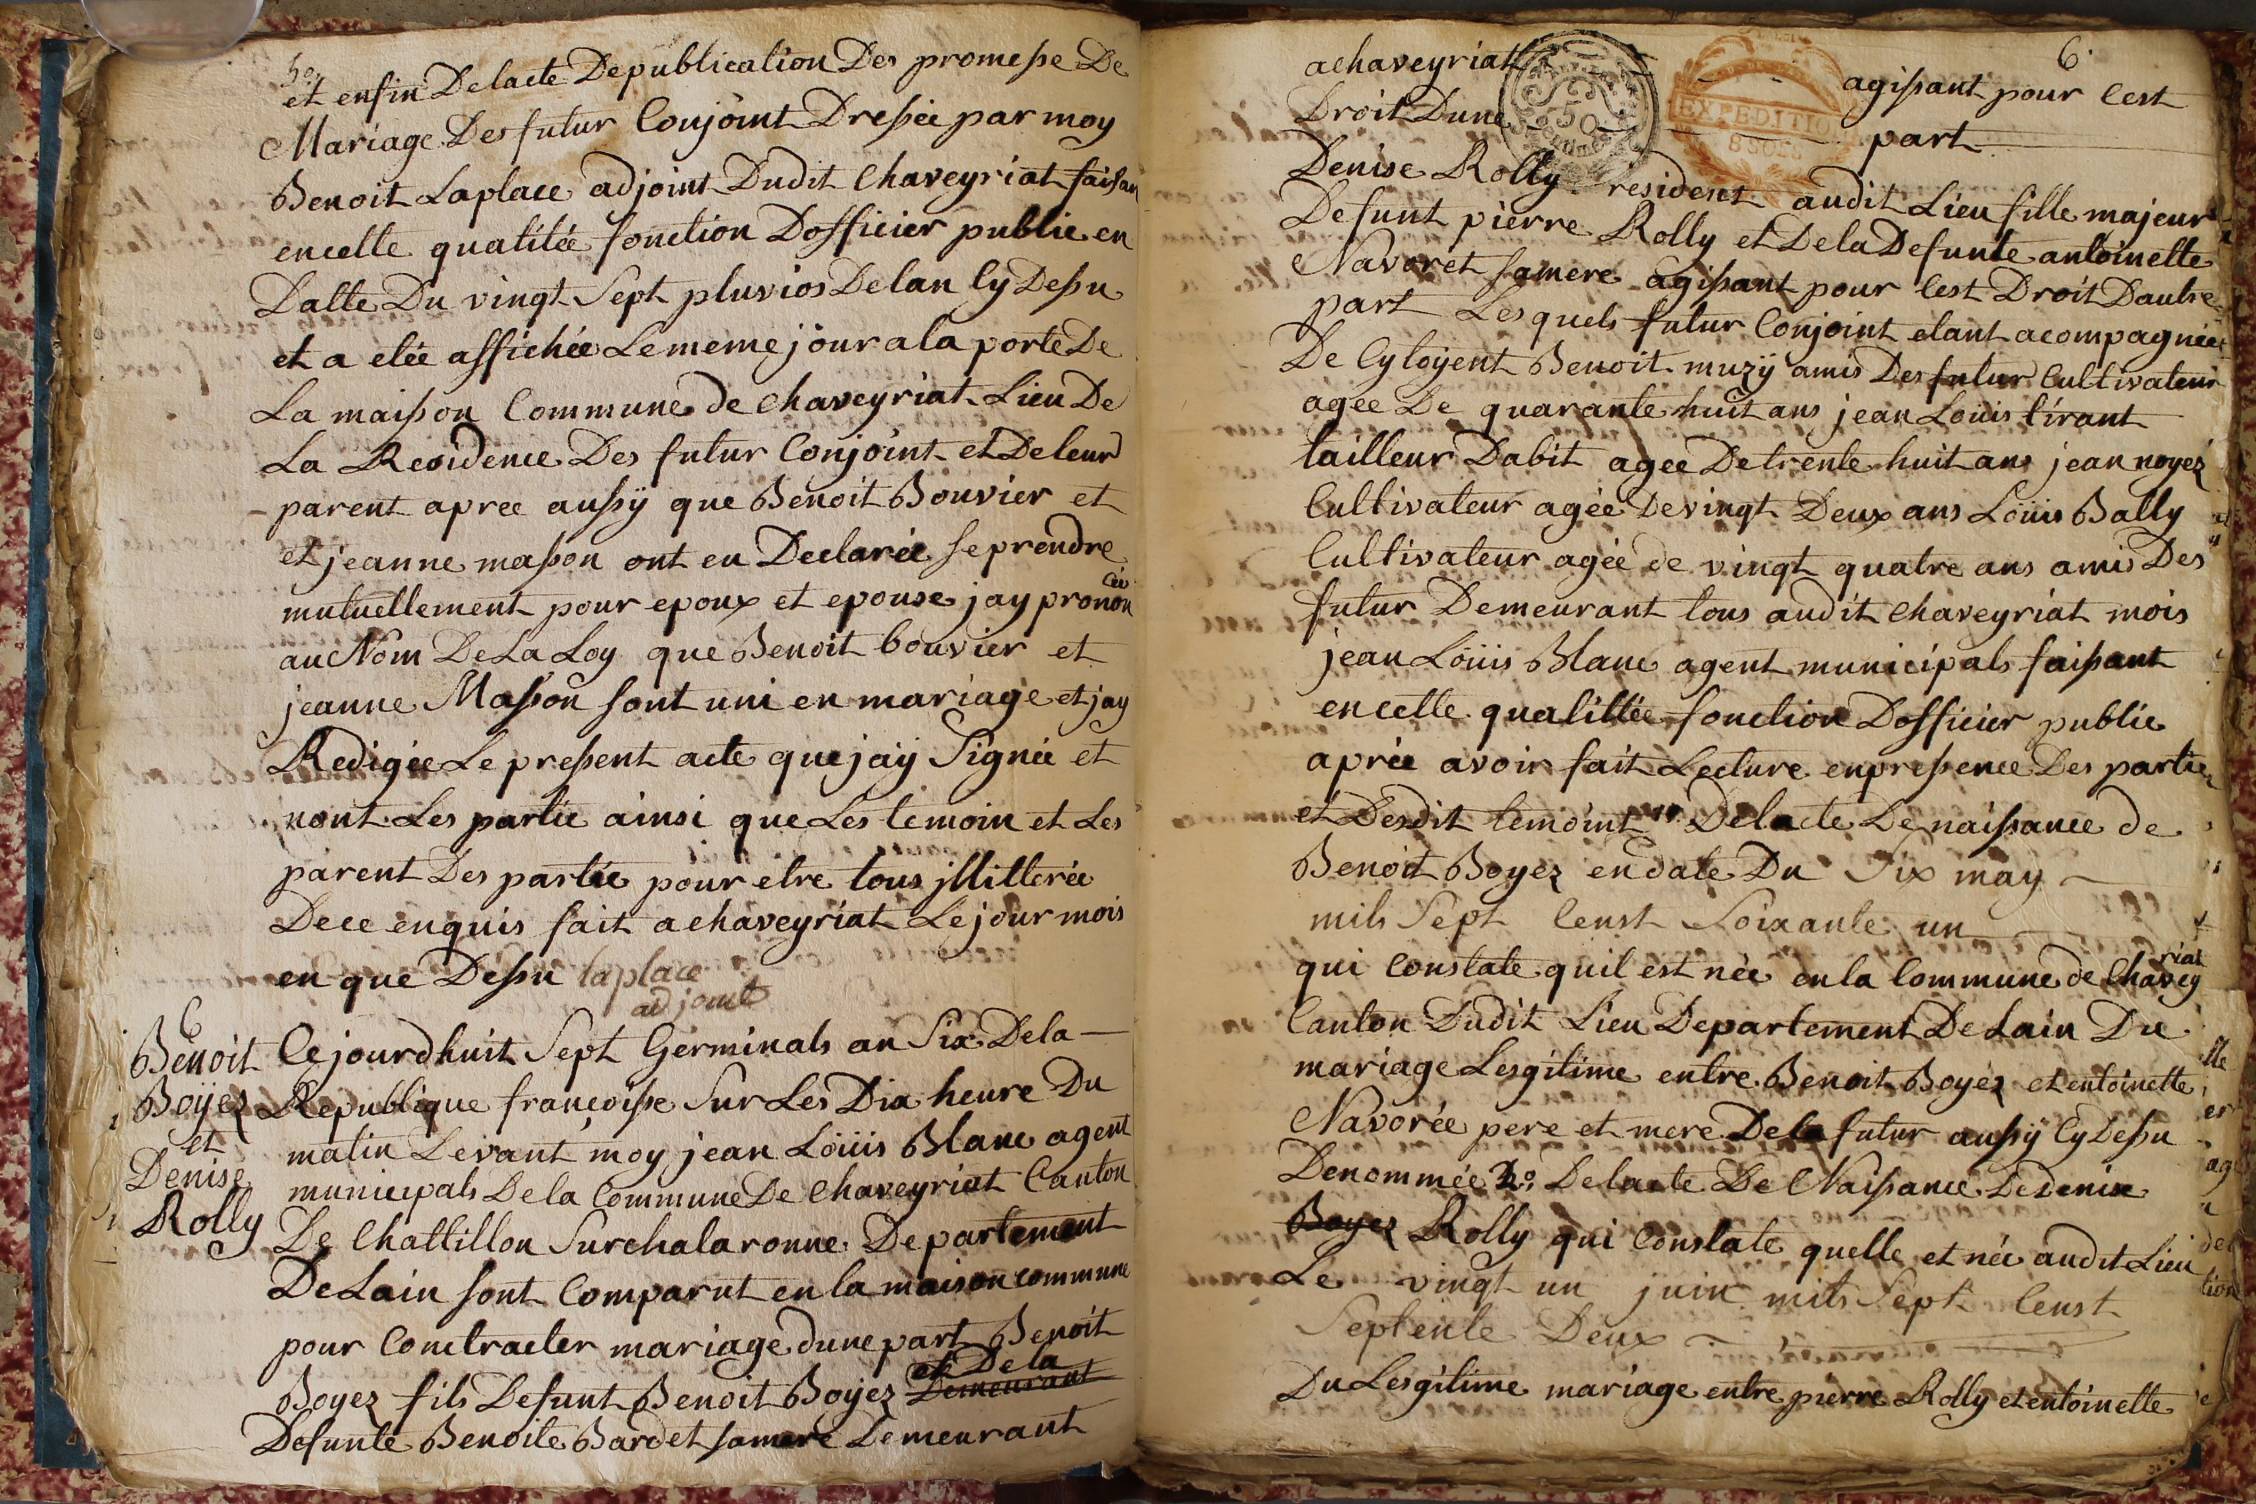 5o.
et enfin Delacte Depublication Des promesse De
Mariage Des futur Conjoint Dressée par moy
Benoit Laplace adjoint Dudit Chaveyriat faisan
encette qualitée fonction Dofficier public en
Datte Du vingt Sept pluvios Delan Cy Dessu
et a etée affichée Lememe jour ala porte De
La maisson Commune de Chaveyriat Lieu De
La Residence Des futur Conjoint et Deleur
parent apree aussÿ que Benoit Bouvier et
et jeanne masson ont eu Declarée seprendre
mutuellement pour epoux et epouse jay pronon
cée
au Nom DeLa Loy que Benoit bouvier et
jeanne Masson sont uni en mariage et jay
Redigée Le pressent acte que jaÿ Signée et
nont Les partie ainsi que Les temoin et Les
parent Des partie pour etre tous jllitterée
Dece enquis fait a chaveyriat Le jour mois
en que Dessu laplace
adjoint
6
Benoit
Boÿez
et
Denise
Rolly
Cejourdhuit Sept Germinals an Six Dela
Republique françoisse Sur Les Dix heure Du
matin Devant moy jean Loüis Blanc agent
municipals Dela Commune De Chaveyriat Canton
De Chattillon Surchalaronne Departement
DeLain sont Comparut en la maison commune
pour Comtracter mariage dune part Benoit
et Dela
Boyez fils Defunt Benoit Boÿez Demeurant
Defunte Benoite Bardet samere Demeurant
6.
achaveyriat agissant pour Cest
Droit Dune part
50
Centimes
EXPEDITION
8 SOLS
Denise Rolly resident audit Lieu fille majeur
Defunt pierre Rolly et Dela Defunte antoinette
Navoret samere agissant pour Cest Droit Dautre
part Les quels futur Conjoint etant acompagnée
De Cytoÿent Benoit muzÿ amis Des futur Cultivateur
agée De quarante huit ans jean Loüis tirant
tailleur Dabit agee Detrente huit ans jean noyez
Cultivateur agée Devingt Deux ans Loüis Bally
Cultivateur agée de vingt quatre ans ami Des
futur Demeurant tous audit chaveyriat mois
jean Loüis Blanc agent municipals faissant
encette qualittée fonction Dofficier public
aprée avoir fait Lecture enpressence Des partie
et Desdit temoint 1o. Delacte De naissance de
Benoit Boyez endate Du Six may
mils Sept Censt Soixante un
qui Constate quil est née en la Commune de Chavey
riat
Canton Dudit Lieu Departement De Lain Du
mariage Lesgitime entre Benoit Boyez et entoinette
Navorée pere et mere Dela futur aussÿ Cy Dessu
Denommée 2o. Delacte De Naissance Dedenise
Boyez Rolly qui Constate quelle et née audit Lieu
Le vingt un juin mils Sept Censt
Septente Deux
Du Lesgitime mariage entre pierre Rolly et entoinette